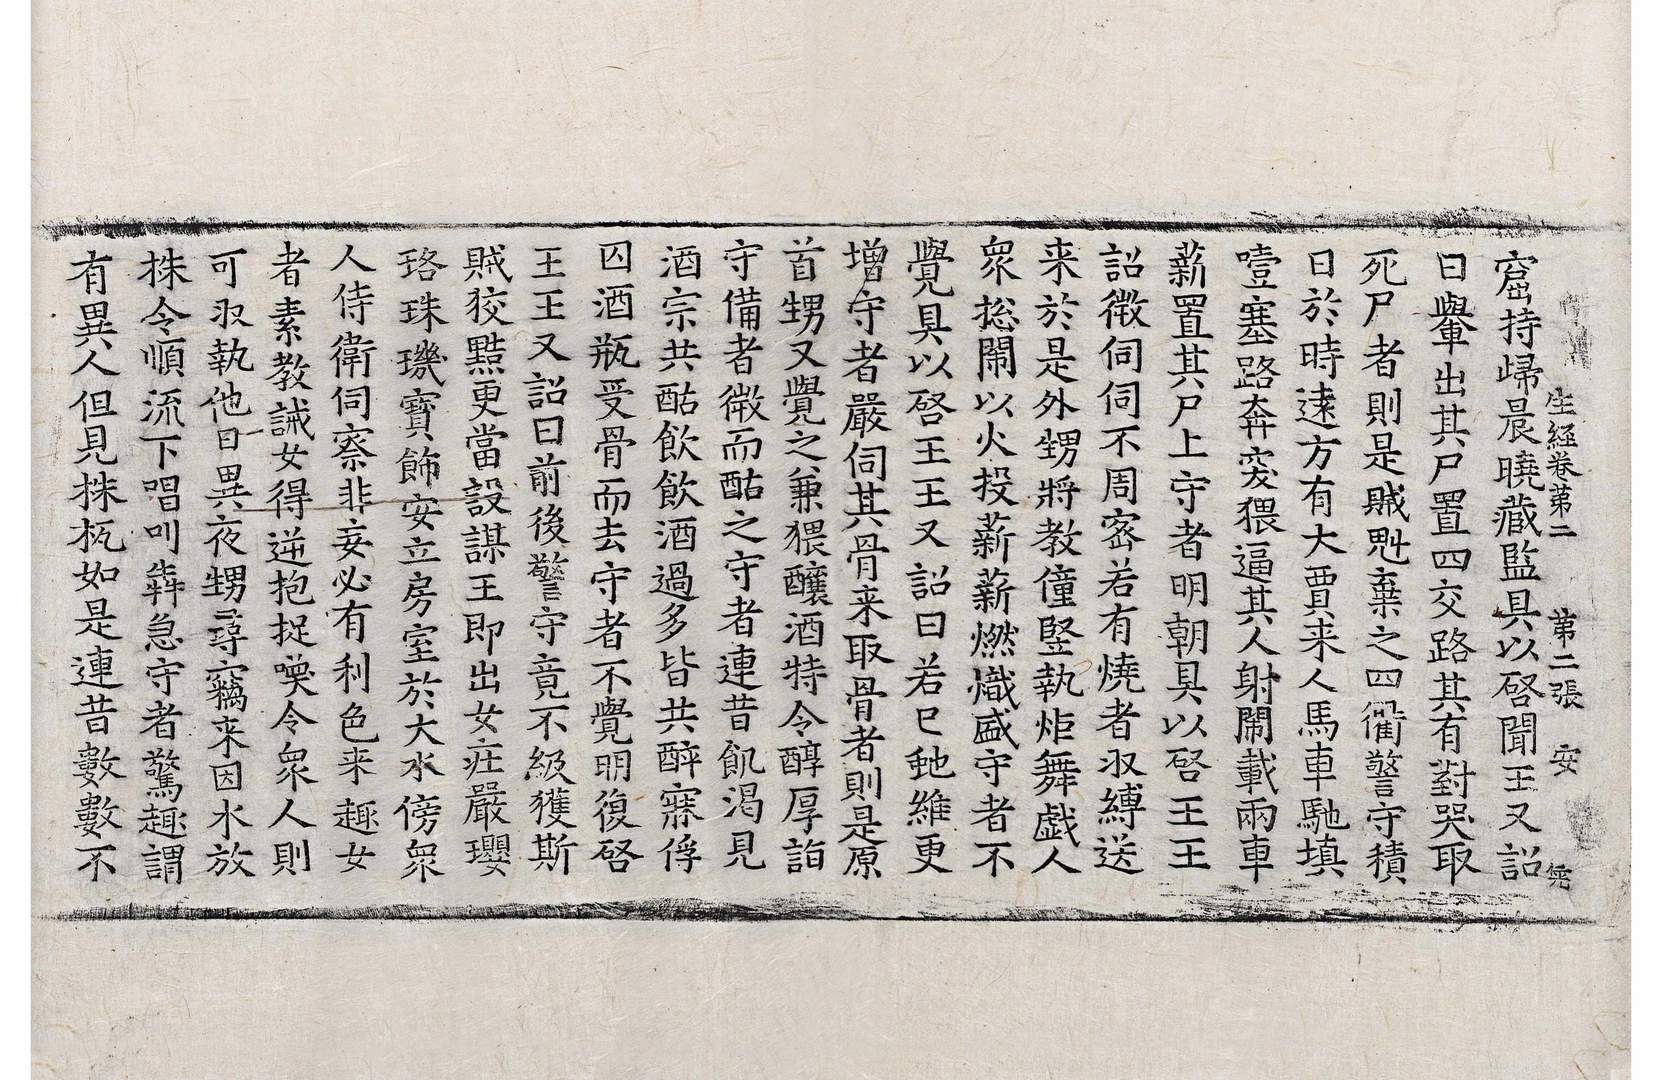 生經卷第二　第二張　安
窟持歸晨曉藏監具以啓聞王又詔
曰轝出其尸置四交路其有對哭取
死尸者則是賊魁棄之四衢警守積
日於時遠方有大賈来人馬車馳填
噎塞路奔突猥逼其人射鬧載兩車
薪置其尸上守者明朝具以啓王王
詔微伺伺不周密若有燒者収縛送
来於是外甥將教僮竪執炬舞戯人
衆揔鬧以火投薪薪燃熾盛守者不
覺具以啓王王又詔曰若已虵維更
增守者嚴伺其骨来取骨者則是原
首甥又覺之兼猥釀酒特令醇厚詣
守備者微而酤之守者連昔飢渴見
酒宗共酤飲飲酒過多皆共醉寐俘
囚酒瓶受骨而去守者不覺明復啓
王王又詔曰前後警守竟不級獲斯
賊狡黠更當設謀王即出女庄嚴瓔
珞珠璣寶飾安立房室於大水傍衆
人侍衛伺察非妄必有利色来趣女
者素教誡女得逆抱捉喚令衆人則
可収執他日異夜甥尋竊来因水放
株令順流下唱叫犇急守者驚趣謂
有異人但見株杌如是連昔數數不